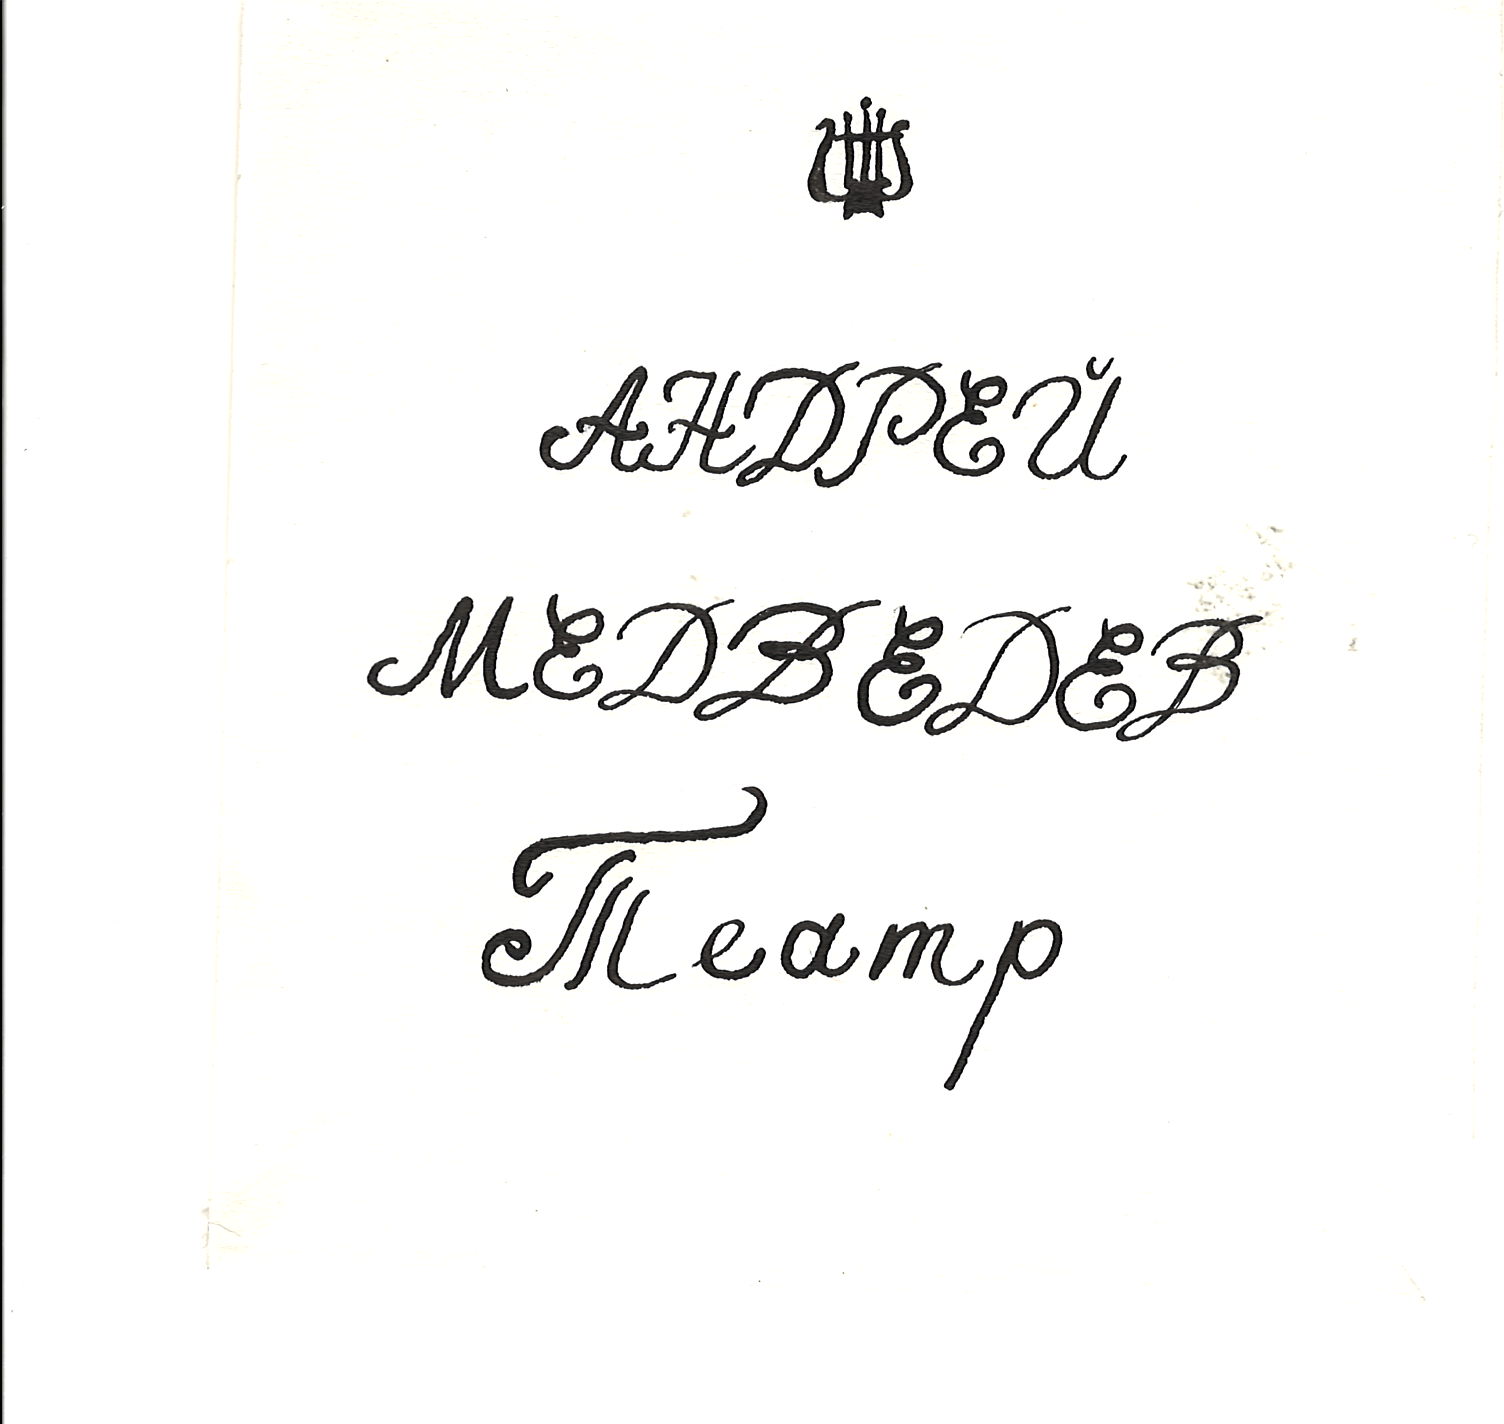 АНДРЕЙ
МЕДВЕДЕВ
Театр